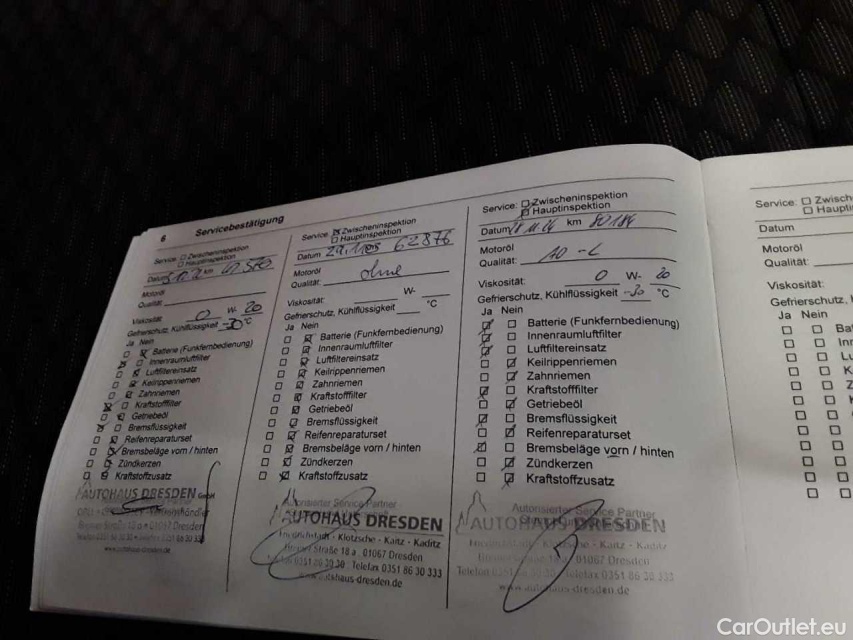 6 Servicebestätigung
Service: Zwischeninspektion
Hauptinspektion
Datum km
Motoröl
Qualität:
Viskosität: 0 W- 20
Gefrierschutz, Kühlflüssigkeit -30 °C
Ja Nein
Batterie (Funkfernbedienung)
Innenraumluftfilter
Luftfiltereinsatz
Keilrippenriemen
Zahnriemen
Kraftstofffilter
Getriebeöl
Bremsflüssigkeit
Reifenreparaturset
Bremsbeläge vorn / hinten
Zündkerzen
Kraftstoffzusatz
AUTOHAUS DRESDEN GmbH
Service Zwischeninspektion
Hauptinspektion
Datum 62876
Motoröl
Qualität: ohne
Viskosität: W-
Gefrierschutz, Kühlflüssigkeit °C
Ja Nein
Batterie (Funkfernbedienung)
Innenraumluftfilter
Luftfiltereinsatz
Keilrippenriemen
Zahnriemen
Kraftstofffilter
Getriebeöl
Bremsflüssigkeit
Reifenreparaturset
Bremsbeläge vorn / hinten
Zündkerzen
Kraftstoffzusatz
Autorisierter Service Partner
AUTOHAUS DRESDEN
Friedrichstadt - Klotzsche - Kaitz - Kaditz
Straße 18 a . 01067 Dresden
0351 86 30 30 Telefax 0351 86 30 333
www.autohaus-dresden.de
Service: Zwischeninspektion
Hauptinspektion
Datum km 80184
Motoröl
Qualität:
Viskosität: 0 W- 20
Gefrierschutz, Kühlflüssigkeit -30 °C
Ja Nein
Batterie (Funkfernbedienung)
Innenraumluftfilter
Luftfiltereinsatz
Keilrippenriemen
Zahnriemen
Kraftstofffilter
Getriebeöl
Bremsflüssigkeit
Reifenreparaturset
Bremsbeläge vorn / hinten
Zündkerzen
Kraftstoffzusatz
Autorisierter Service Partner
AUTOHAUS DRESDEN
Klotzsche - Kaitz - Kaditz
01067 Dresden
Telefax 0351 86 30 333
www.autohaus-dresden.de
Service: Zwisch
Haupti
Datum
Motoröl
Qualität:
Viskosität:
Gefrierschutz,
Ja Nein
CarOutlet.eu